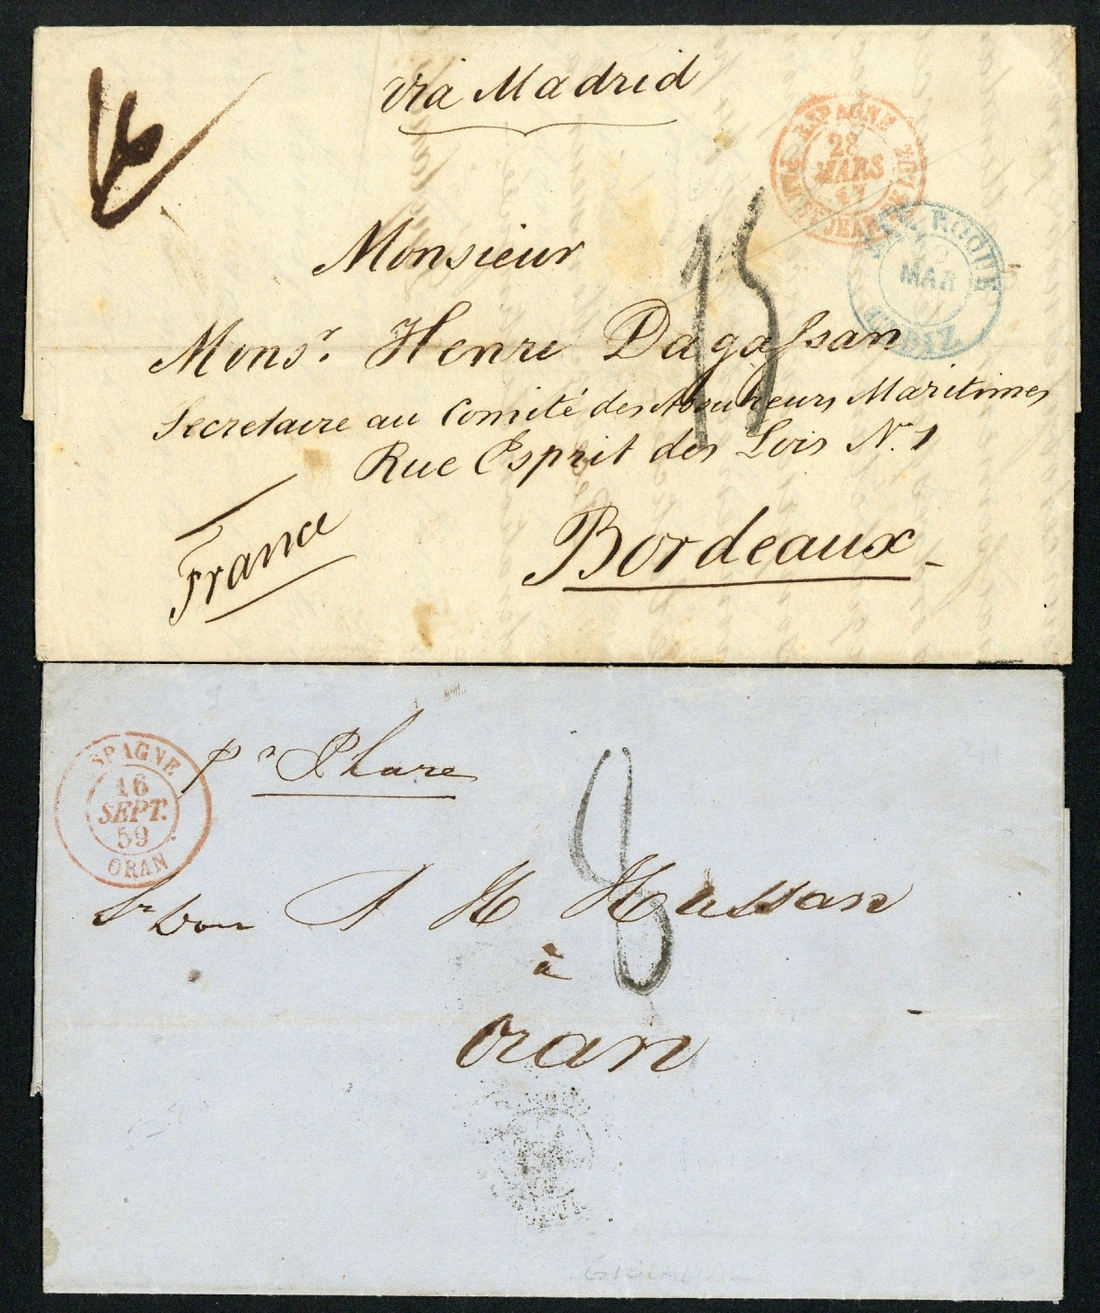 via Madrid
ESPAGNE
28
MARS
47
ST JEAN DE LUZ
SAN ROQUE
MAR
CADIZ
15
Monsieur
Monsr. Henri Dagassan
Secretaire au Comité des Assureurs Maritimes
Rue Esprit des Lois N. 1
France
Bordeaux
ESPAGNE
16
SEPT.
59
ORAN
pr Phare
8
Sr Don A H Hassan
à
Oran